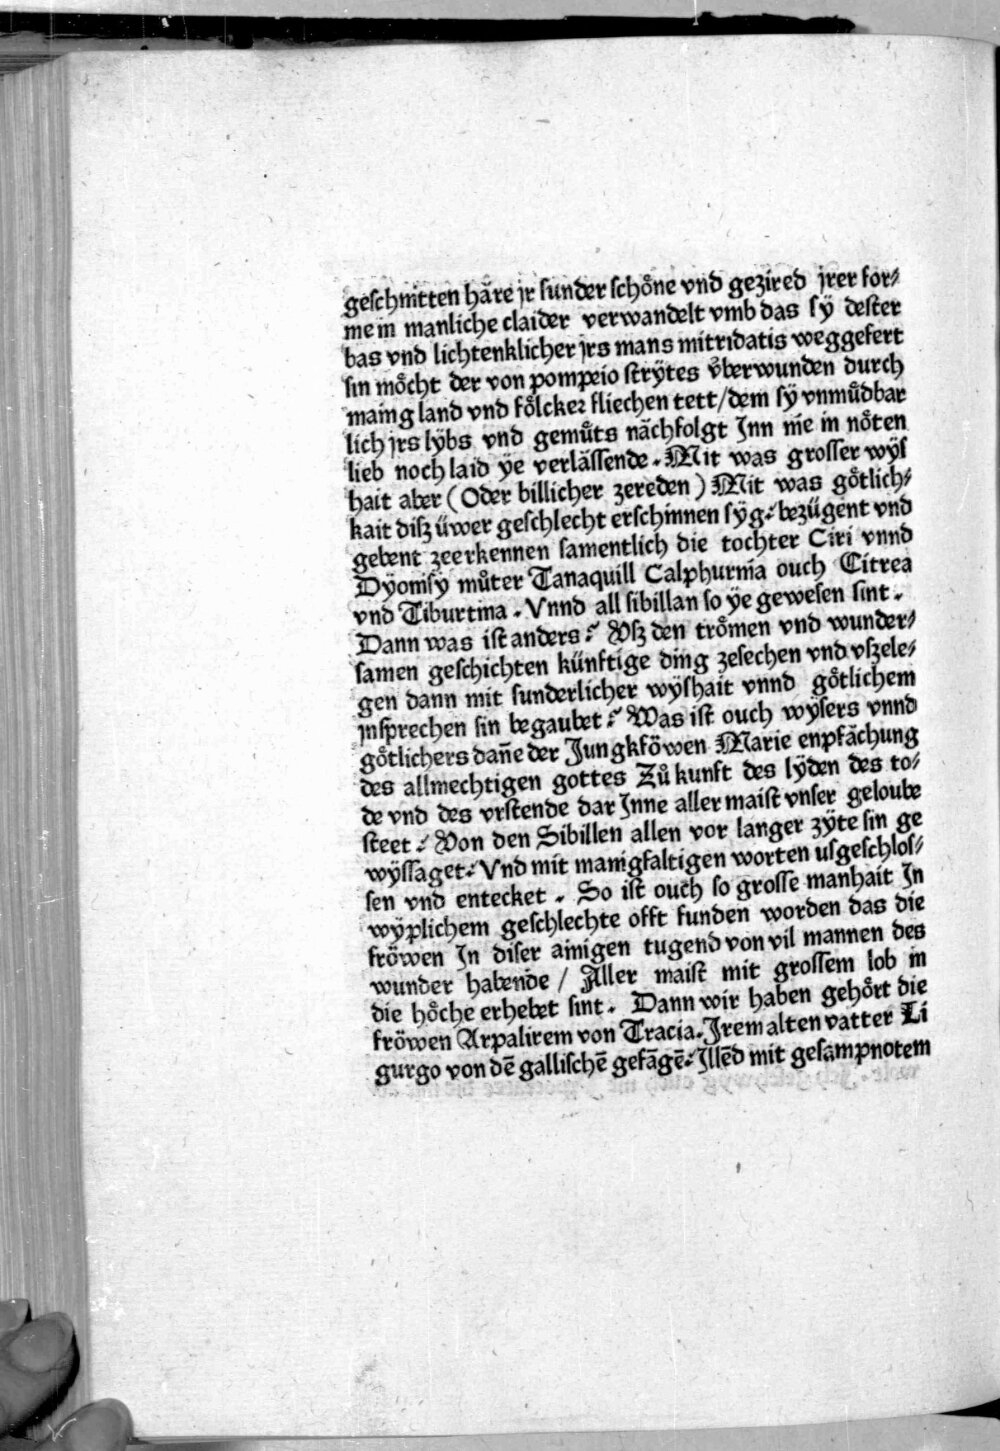 geschnitten häre jr sunder schöne vnd gezired jrer for⸗
me in manliche claider verwandelt vmb das sÿ dester
bas vnd lichtenklicher jrs mans mitridatis weggefert
sin möcht der von pompeio strÿtes v̊berwunden durch
maing land vnd fölcker fliechen tett/dem sÿ vnmůdbar
lich jrs lÿbs vnd gemůts nächfolgt Jnn nie in nöten
lieb noch laid ÿe verlässende. Mit was grosser wÿs
hait aber (Oder billicher zereden) Mit was götlich⸗
kait disz üwer geschlecht erschinnen sÿg: bezügent vnd
gebent zeerkennen samentlich die tochter Ciri vnnd
Dÿonisÿ můter Tanaquill Calphurnia ouch Citrea
vnd Tiburtina. Vnnd all sibillan so ÿe gewesen sint.
Dann was ist anders? Vsz den trömen vnd wunder⸗
samen geschichten künftige ding zesechen vnd vszele⸗
gen dann mit sunderlicher wÿshait vnnd götlichem
jnsprechen sin begaubet? Was ist ouch wÿsers vnnd
götlichers dañe der Jungkföwen Marie enpfächung
des allmechtigen gottes Zůkunft des lÿden des to⸗
de vnd des vrstende dar Jnne aller maist vnser geloube
steet? Von den Sibillen allen vor langer zÿte sin ge
wÿssaget: Vnd mit manigfaltigen worten usgeschlos⸗
sen vnd entecket. So ist ouch so grosse manhait Jn
wÿplichem geschlechte offt funden worden das die
fröwen Jn diser ainigen tugend von vil mannen des
wunder habende / Aller maist mit grossem lob in
die höche erhebet sint. Dann wir haben gehört die
fröwen Arpalirem von Tracia. Jrem alten vatter Li
gurgo von dē gallischē gefāgē: Jllēd mit gesampnotem